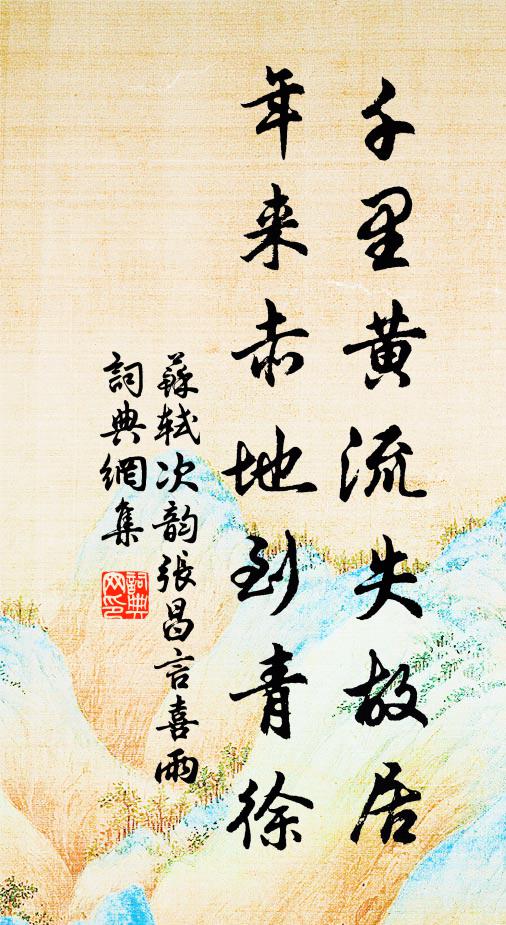 千里黄流失故居
年来赤地到青徐
蘇軾次韵張昌言喜雨
詞典網集
詞典网印